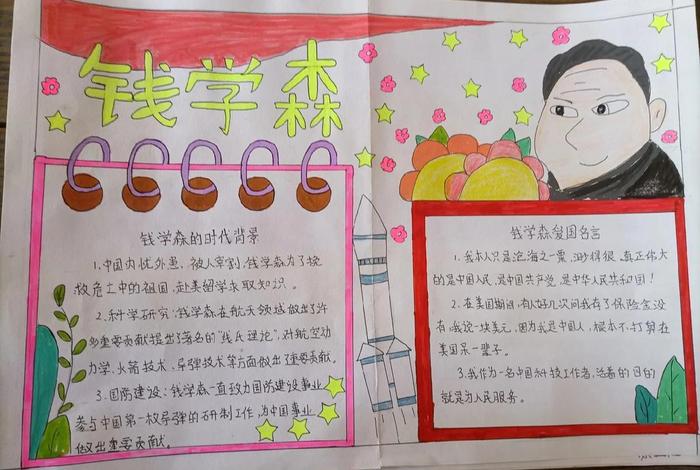 钱学森
钱学森的时代背景
1.中国内忧外患,被人宰割,钱学森为了挽
救危亡中的祖国,赴美留学求取知识。
2.科学研究:钱学森在航天领域做出了许
多重要贡献提出了著名的“钱氏理论”,对航空动
力学、火箭技术、导弹技术等方面做出了重要贡献。
3.国防建设:钱学森一直致力国防建设事业
参与中国第一枚导弹的研制工作,为中国事业
做出重要贡献。
钱学森爱国名言
1.我本人只是沧海之一粟,渺小得很。真正伟大
的是中国人民,是中国共产党,是中华人民共和国!
2.在美国期间,有人好几次问我存了保险金没
有,我说一块美元,因为我是中国人,根本不打算在
美国呆一辈子。
3.我作为一名中国科技工作者,活着的目的
就是为人民服务。